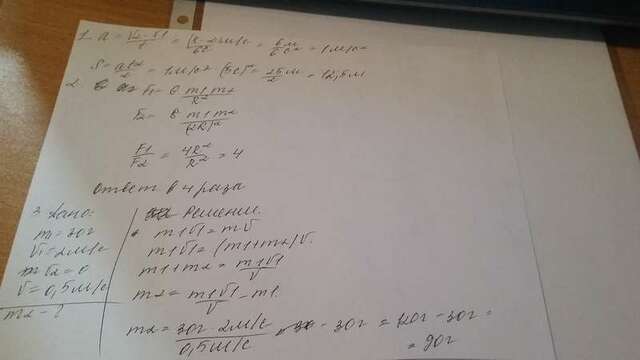 1. a = (V2 - V1)/t = (8 - 2)м/с/6с = 6м/6с² = 1 м/с²
S = at²/2 = 1м/с² · (5с)² = 25м/2 = 12,5м
2. F1 = G m1m2/R²
F2 = G m1m2/(2R)²
F1/F2 = 4R²/R² = 4
Ответ в 4 раза
3. Дано:
m1 = 30г
V1 = 2м/с
V2 = 0
V = 0,5м/с
m2 - ?
Решение:
m1V1 = mV
m1V1 = (m1+m2)V.
m1+m2 = m1V1/V
m2 = m1V1/V - m1.
m2 = 30г · 2м/с / 0,5м/с - 30г = 120г - 30г =
= 90г